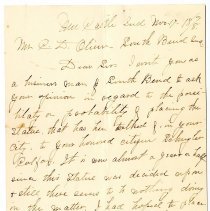 Nov 17 18
Mr. C. D. Oliver South Bend Ind
Dear Sir I write you as
a business man of South Bend to ask
your opinion in regard to the possi-
bility or probability of placing the
Statue, that has been talked of, in your
City, to your honored citizen Schuyler
Colfax. It is now almost a year
since this Statue was decided upon
& still there seems to be nothing done
in the matter, I had hoped to place